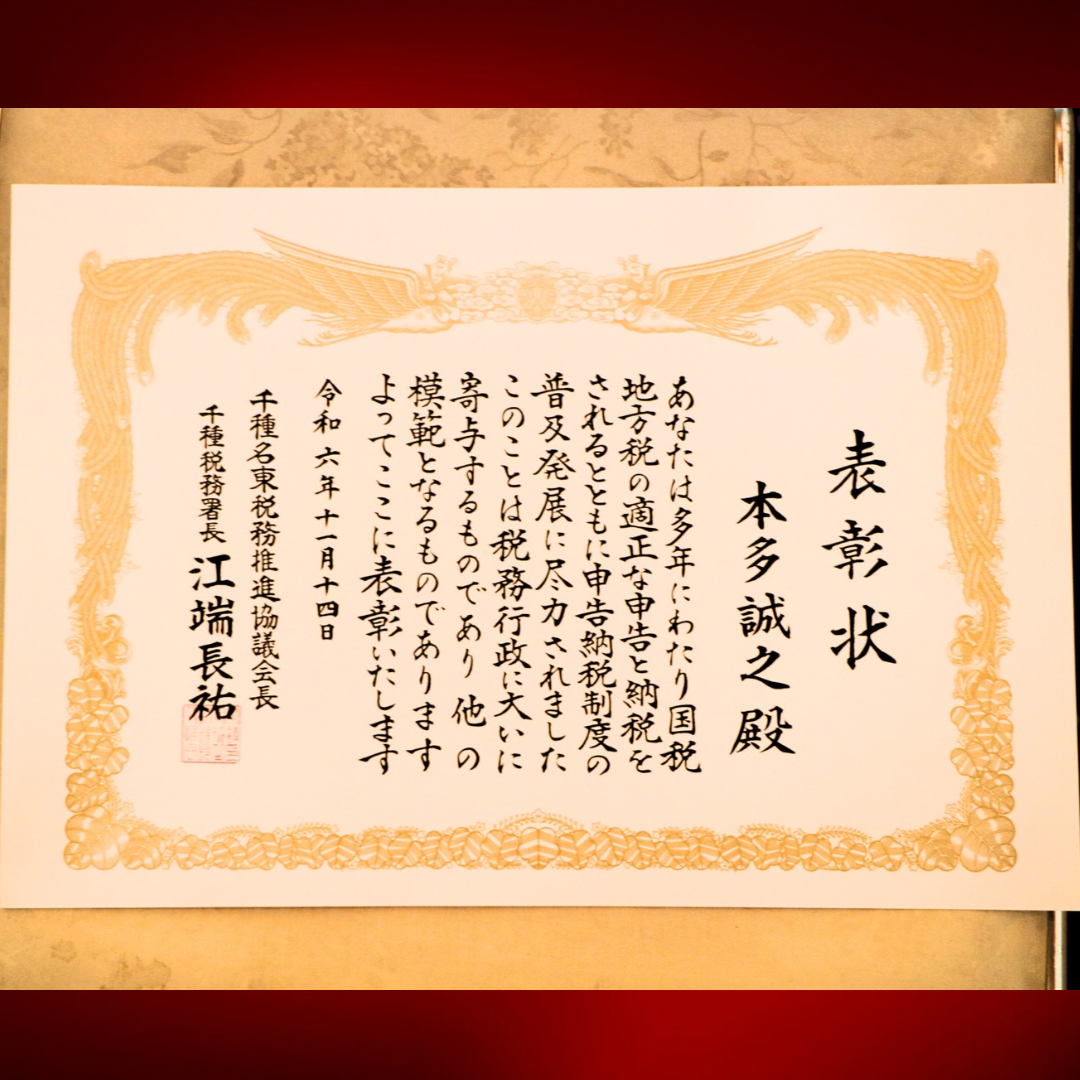 表彰状
本多誠之殿
あなたは多年にわたり国税
地方税の適正な申告と納税を
されるとともに申告納税制度の
普及発展に尽力されました
このことは税務行政に大いに
寄与するものであり他の
模範となるものであります
よってここに表彰いたします
令和六年十一月十四日
千種名東税務推進協議会長
千種税務署長 江端長祐